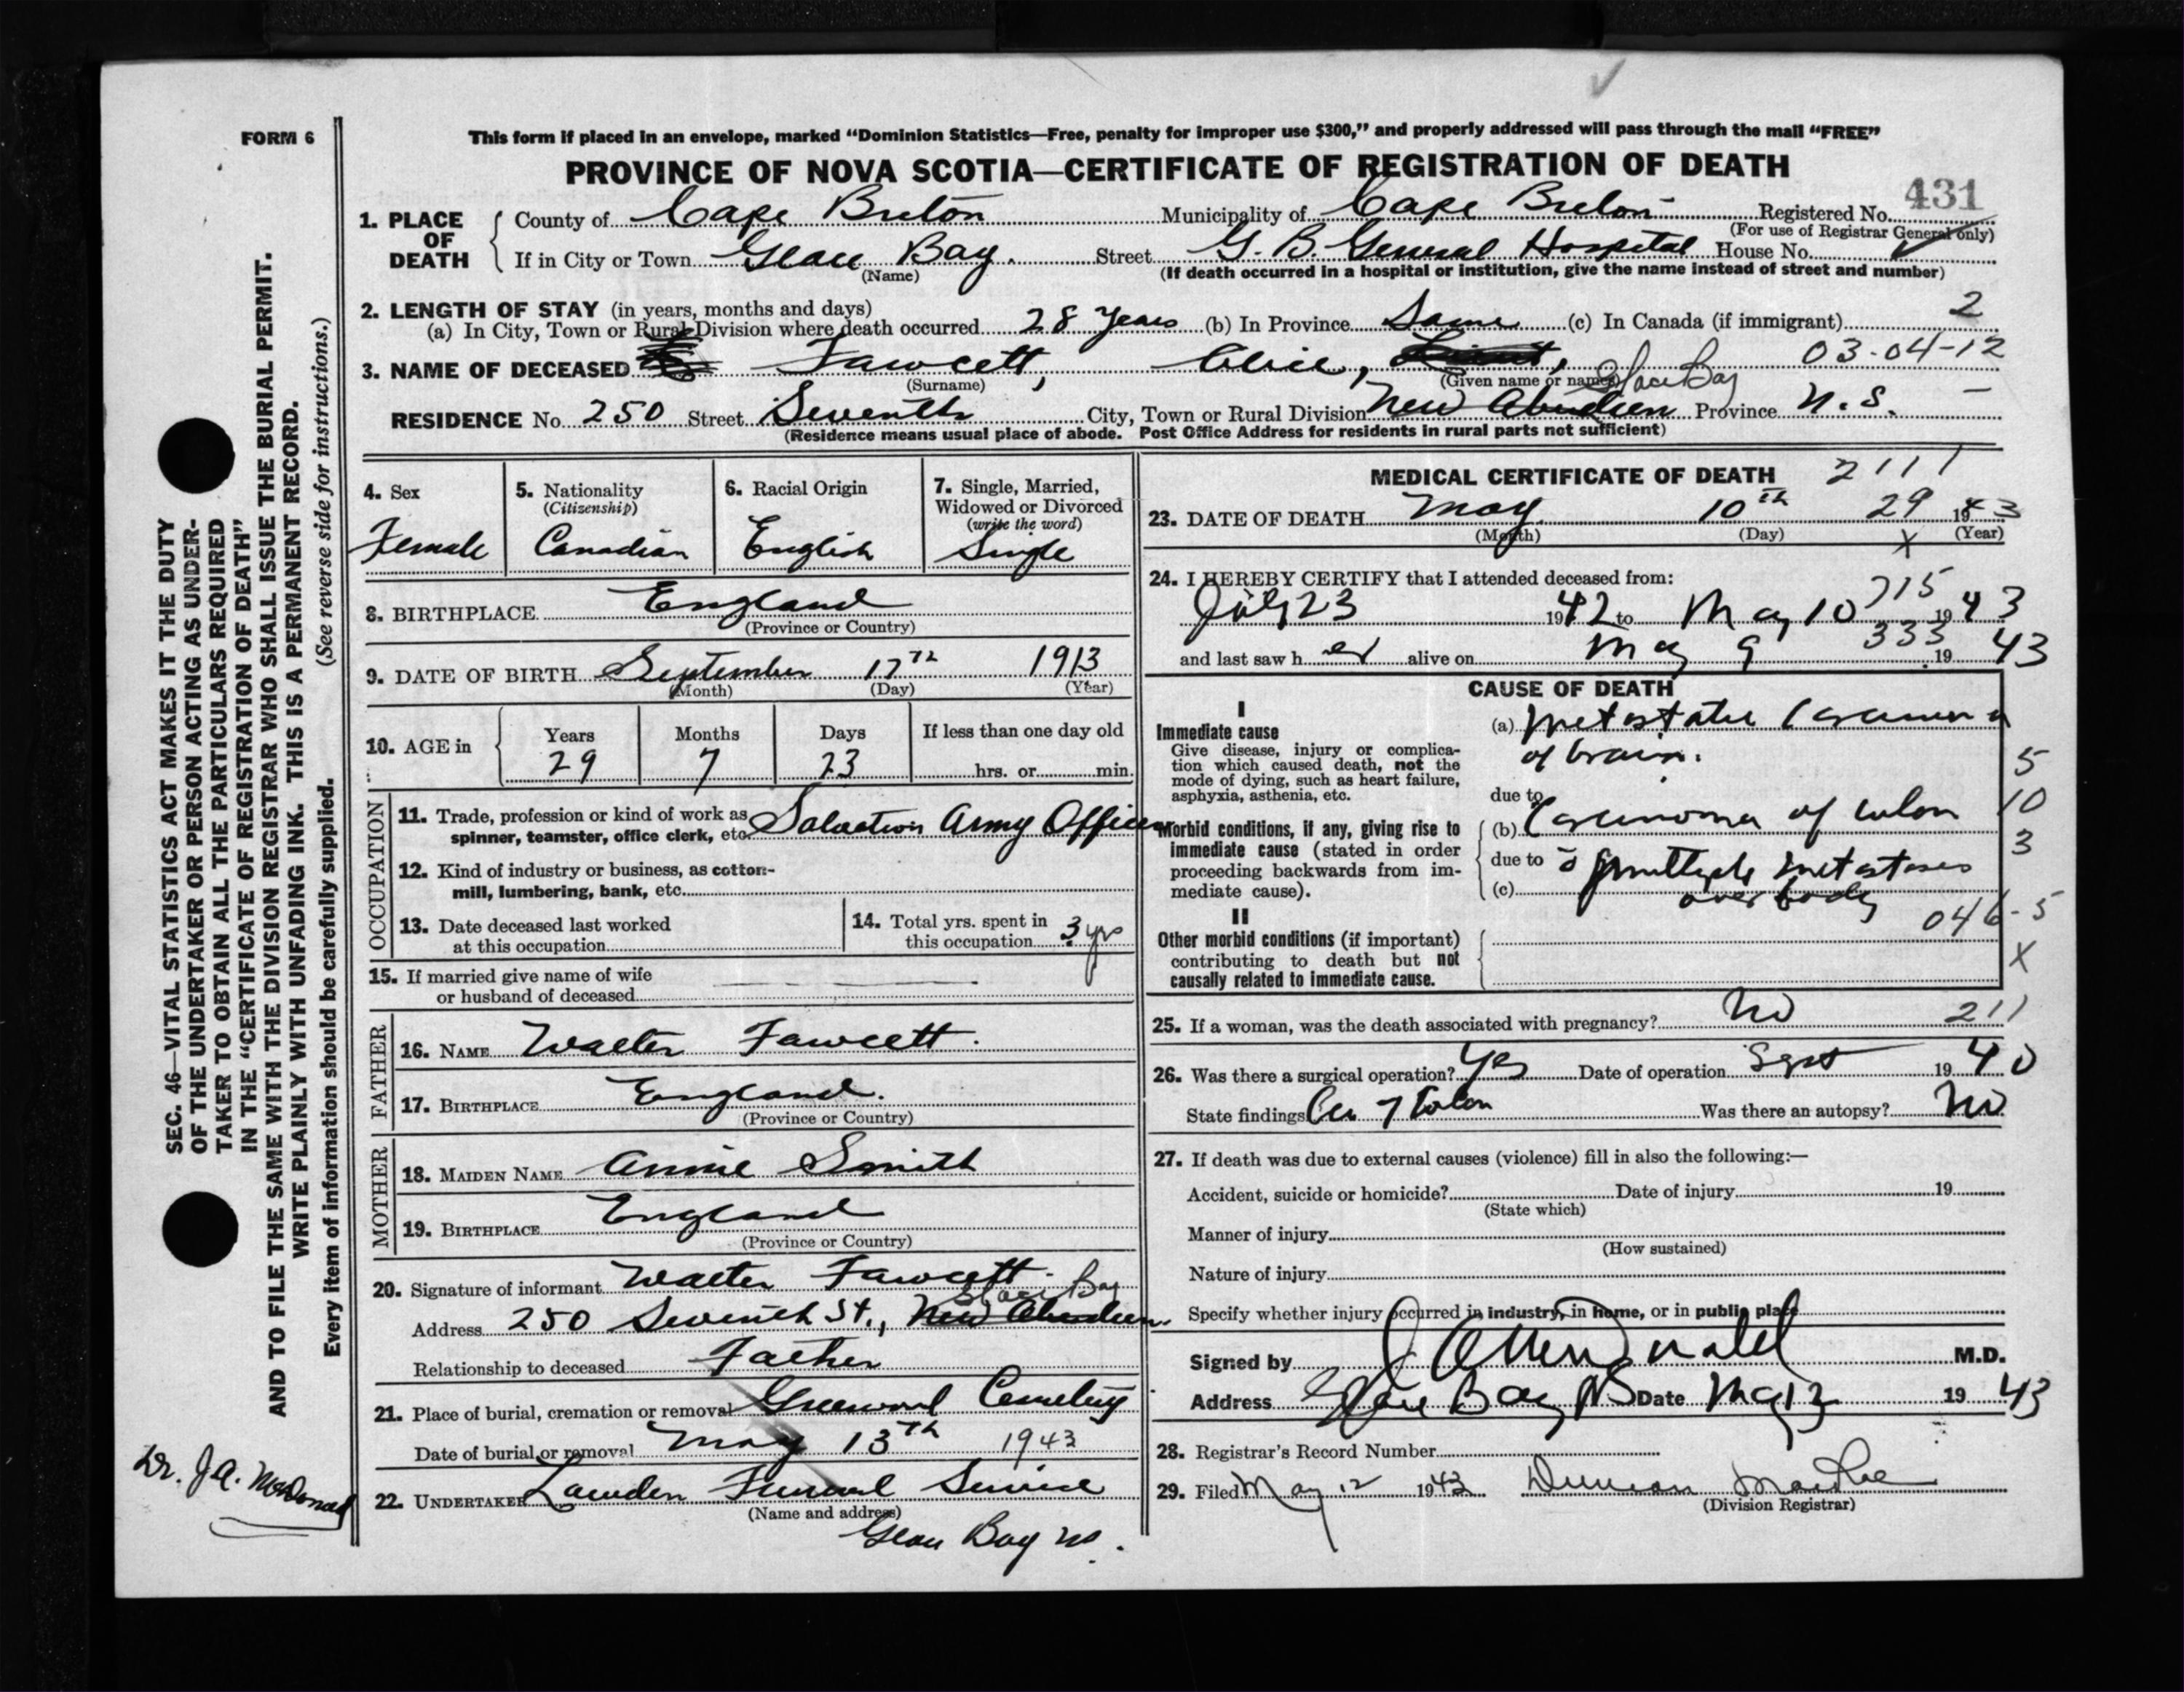 FORM 6
This form if placed in an envelope, marked “Dominion Statistics—Free, penalty for improper use $300,” and properly addressed will pass through the mail “FREE”
PROVINCE OF NOVA SCOTIA—CERTIFICATE OF REGISTRATION OF DEATH
431
1. PLACE OF DEATH
County of Cape Breton Municipality of Cape Breton Registered No.
(For use of Registrar General only)
If in City or Town Glace Bay. Street G. B. General Hospital House No.
(Name) (If death occurred in a hospital or institution, give the name instead of street and number)
2. LENGTH OF STAY (in years, months and days)
(a) In City, Town or Rural Division where death occurred 28 years (b) In Province Same (c) In Canada (if immigrant) 2
3. NAME OF DECEASED Fawcett, Alice, 03-04-12
(Surname) (Given name or names)
Glace Bay
RESIDENCE No. 250 Street Seventh City, Town or Rural Division New Aberdeen Province N.S. —
(Residence means usual place of abode. Post Office Address for residents in rural parts not sufficient)
4. Sex Female
5. Nationality (Citizenship) Canadian
6. Racial Origin English
7. Single, Married, Widowed or Divorced (write the word) Single
8. BIRTHPLACE England
(Province or Country)
9. DATE OF BIRTH September 17th 1913
(Month) (Day) (Year)
10. AGE in Years 29 Months 7 Days 23 If less than one day old hrs. or min.
OCCUPATION
11. Trade, profession or kind of work as spinner, teamster, office clerk, etc. Salvation Army Officer
12. Kind of industry or business, as cotton-mill, lumbering, bank, etc.
13. Date deceased last worked at this occupation
14. Total yrs. spent in this occupation 3 yrs
15. If married give name of wife or husband of deceased
FATHER
16. NAME Walter Fawcett.
17. BIRTHPLACE England.
(Province or Country)
MOTHER
18. MAIDEN NAME Annie Smith
19. BIRTHPLACE England
(Province or Country)
20. Signature of informant Walter Fawcett.
Glace Bay
Address 250 Seventh St., New Aberdeen.
Relationship to deceased Father
21. Place of burial, cremation or removal Greenwood Cemetery
Date of burial or removal May 13th 1943
22. UNDERTAKER Lawden Funeral Service
(Name and address)
Glace Bay NS.
MEDICAL CERTIFICATE OF DEATH 2111
23. DATE OF DEATH May 10th 29 1943
(Month) (Day) X (Year)
24. I HEREBY CERTIFY that I attended deceased from:
July 23 1942 to May 10 715 1943
and last saw her alive on May 9 333 1943
CAUSE OF DEATH
I
Immediate cause
Give disease, injury or complication which caused death, not the mode of dying, such as heart failure, asphyxia, asthenia, etc.
(a) Metastatic Carcinoma
of brain. 5
due to 10
Morbid conditions, if any, giving rise to immediate cause (stated in order proceeding backwards from immediate cause).
(b) Carcinoma of colon 3
due to
(c) multiple metastases
over body 046-5
II
Other morbid conditions (if important) contributing to death but not causally related to immediate cause. X
25. If a woman, was the death associated with pregnancy? No 211
26. Was there a surgical operation? Yes Date of operation Sept 1940
State findings Ca of Colon Was there an autopsy? No
27. If death was due to external causes (violence) fill in also the following:—
Accident, suicide or homicide? Date of injury 19
(State which)
Manner of injury
(How sustained)
Nature of injury
Specify whether injury occurred in industry, in home, or in public place
Signed by M.D.
Address Glace Bay NS Date May 12 1943
28. Registrar's Record Number
29. Filed May 12 1943 Duncan
(Division Registrar)
SEC. 46—VITAL STATISTICS ACT MAKES IT THE DUTY
OF THE UNDERTAKER OR PERSON ACTING AS UNDER-
TAKER TO OBTAIN ALL THE PARTICULARS REQUIRED
IN THE “CERTIFICATE OF REGISTRATION OF DEATH”
AND TO FILE THE SAME WITH THE DIVISION REGISTRAR WHO SHALL ISSUE THE BURIAL PERMIT.
WRITE PLAINLY WITH UNFADING INK. THIS IS A PERMANENT RECORD.
Every item of information should be carefully supplied. (See reverse side for instructions.)
Dr. J. A. McDonald